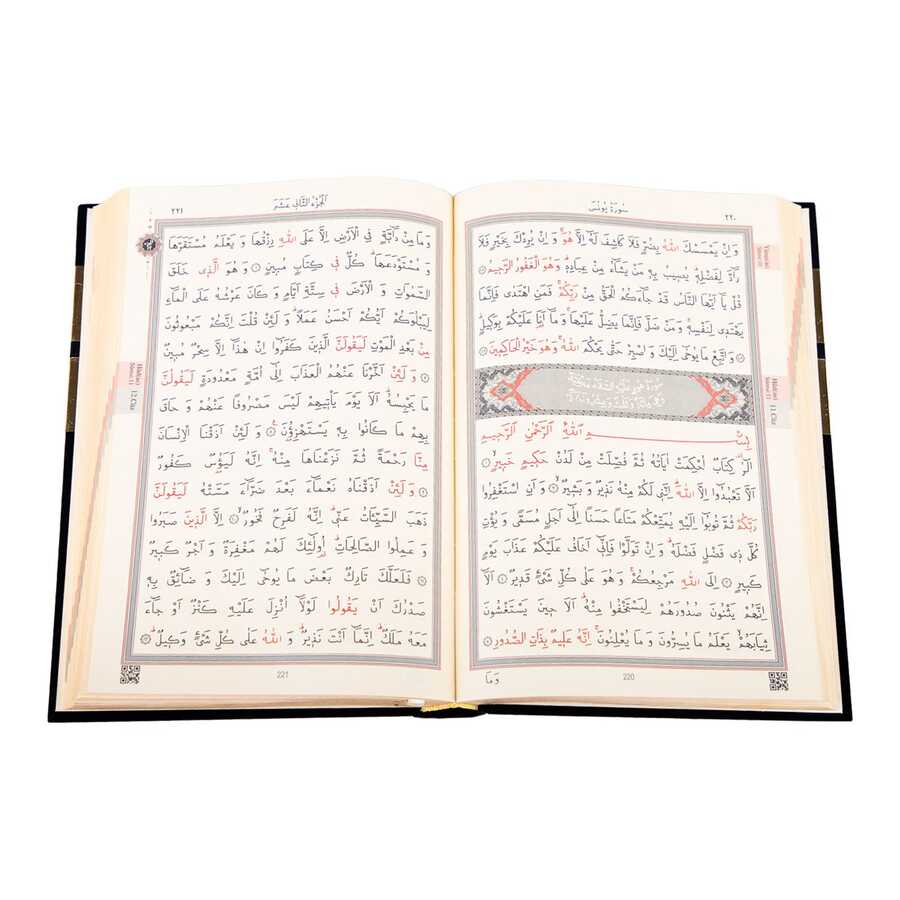 سُورَةُ يُونُسَ ٢٢٠
وَ اِنْ يَمْسَسْكَ اللّٰهُ بِضُرٍّ فَلَا كَاشِفَ لَهُٓ اِلَّا هُوَۚ وَ اِنْ يُرِدْكَ بِخَيْرٍ فَلَا
رَٓادَّ لِفَضْلِه۪ۜ يُص۪يبُ بِه۪ مَنْ يَشَٓاءُ مِنْ عِبَادِه۪ۜ وَهُوَ الْغَفُورُ الرَّح۪يمُ
قُلْ يَٓا اَيُّهَا النَّاسُ قَدْ جَٓاءَكُمُ الْحَقُّ مِنْ رَبِّكُمْۚ فَمَنِ اهْتَدٰى فَاِنَّمَا
يَهْتَد۪ي لِنَفْسِه۪ۚ وَ مَنْ ضَلَّ فَاِنَّمَا يَضِلُّ عَلَيْهَاۚ وَ مَٓا اَنَا۬ عَلَيْكُمْ بِوَك۪يلٍۜ
وَ اتَّبِعْ مَا يُوحٰٓى اِلَيْكَ وَ اصْبِرْ حَتّٰى يَحْكُمَ اللّٰهُۚ وَ هُوَ خَيْرُ الْحَاكِم۪ينَ
بِسْــــمِ اللّٰهِ الرَّحْمٰنِ الرَّح۪يمِ
الٓرٰ۠ كِتَابٌ اُحْكِمَتْ اٰيَاتُهُ ثُمَّ فُصِّلَتْ مِنْ لَدُنْ حَك۪يمٍ خَب۪يرٍۙ ١
اَلَّا تَعْبُدُٓوا اِلَّا اللّٰهَۜ اِنَّن۪ي لَكُمْ مِنْهُ نَذ۪يرٌ وَ بَش۪يرٌۙ ٢ وَ اَنِ اسْتَغْفِرُوا
رَبَّكُمْ ثُمَّ تُوبُٓوا اِلَيْهِ يُمَتِّعْكُمْ مَتَاعًا حَسَنًا اِلٰٓى اَجَلٍ مُسَمًّى وَ يُؤْتِ
كُلَّ ذ۪ي فَضْلٍ فَضْلَهُۜ وَ اِنْ تَوَلَّوْا فَاِنّ۪ٓي اَخَافُ عَلَيْكُمْ عَذَابَ يَوْمٍ
كَب۪يرٍ ٣ اِلَى اللّٰهِ مَرْجِعُكُمْۚ وَ هُوَ عَلٰى كُلِّ شَيْءٍ قَد۪يرٌ ٤ اَلَٓا
اِنَّهُمْ يَثْنُونَ صُدُورَهُمْ لِيَسْتَخْفُوا مِنْهُۜ اَلَا ح۪ينَ يَسْتَغْشُونَ
ثِيَابَهُمْۙ يَعْلَمُ مَا يُسِرُّونَ وَ مَا يُعْلِنُونَۚ اِنَّهُ عَل۪يمٌ بِذَاتِ الصُّدُورِ ٥
وَمَا
220
Yunus
Sûresi 10
Hûd
Sûresi 11
اَلْجُزْءُ الثَّان۪ي عَشَرَ ٢٢١
وَ مَا مِنْ دَٓابَّةٍ فِي الْاَرْضِ اِلَّا عَلَى اللّٰهِ رِزْقُهَا وَ يَعْلَمُ مُسْتَقَرَّهَا
وَ مُسْتَوْدَعَهَاۜ كُلٌّ ف۪ي كِتَابٍ مُب۪ينٍ ٦ وَ هُوَ الَّذ۪ي خَلَقَ
السَّمٰوَاتِ وَ الْاَرْضَ ف۪ي سِتَّةِ اَيَّامٍ وَ كَانَ عَرْشُهُ عَلَى الْمَٓاءِ
لِيَبْلُوَكُمْ اَيُّكُمْ اَحْسَنُ عَمَلًاۜ وَ لَئِنْ قُلْتَ اِنَّكُمْ مَبْعُوثُونَ
مِنْ بَعْدِ الْمَوْتِ لَيَقُولَنَّ الَّذ۪ينَ كَفَرُٓوا اِنْ هٰذَٓا اِلَّا سِحْرٌ مُب۪ينٌ
٧ وَ لَئِنْ اَخَّرْنَا عَنْهُمُ الْعَذَابَ اِلٰٓى اُمَّةٍ مَعْدُودَةٍ لَيَقُولُنَّ
مَا يَحْبِسُهُۜ اَلَا يَوْمَ يَأْت۪يهِمْ لَيْسَ مَصْرُوفًا عَنْهُمْ وَ حَاقَ
بِهِمْ مَا كَانُوا بِه۪ يَسْتَهْزِؤُ۫نَ۟ ٨ وَ لَئِنْ اَذَقْنَا الْاِنْسَانَ
مِنَّا رَحْمَةً ثُمَّ نَزَعْنَاهَا مِنْهُۚ اِنَّهُ لَيَؤُ۫سٌ كَفُورٌ
٩ وَ لَئِنْ اَذَقْنَاهُ نَعْمَٓاءَ بَعْدَ ضَرَّٓاءَ مَسَّتْهُ لَيَقُولَنَّ
ذَهَبَ السَّيِّـَٔاتُ عَنّ۪يۜ اِنَّهُ لَفَرِحٌ فَخُورٌۙ ١٠ اِلَّا الَّذ۪ينَ صَبَرُوا
وَ عَمِلُوا الصَّالِحَاتِۜ اُو۬لٰٓئِكَ لَهُمْ مَغْفِرَةٌ وَ اَجْرٌ كَب۪يرٌ
١١ فَلَعَلَّكَ تَارِكٌ بَعْضَ مَا يُوحٰٓى اِلَيْكَ وَ ضَٓائِقٌ بِه۪
صَدْرُكَ اَنْ يَقُولُوا لَوْلَٓا اُنْزِلَ عَلَيْهِ كَنْزٌ اَوْ جَٓاءَ
مَعَهُ مَلَكٌۜ اِنَّمَٓا اَنْتَ نَذ۪يرٌۜ وَ اللّٰهُ عَلٰى كُلِّ شَيْءٍ وَك۪يلٌۜ ١٢
221
Hûd
Sûresi 11
12.Cüz